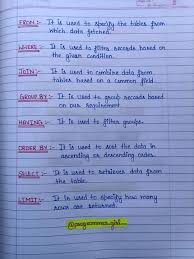 FROM :- It is used to specify the tables from
which data fetched.
WHERE :- It is used to filter records based on
the given condition.
JOIN :- It is used to combine data from
tables based on a common field.
GROUP BY :- It is used to group records based
on our requirement.
HAVING :- It is used to filter groups.
ORDER BY :- It is used to sort the data in
ascending or descending order.
SELECT :- It is used to retrieves data from
the table.
LIMIT :- It is used to specify how many
rows are returned.
@programmer_girl